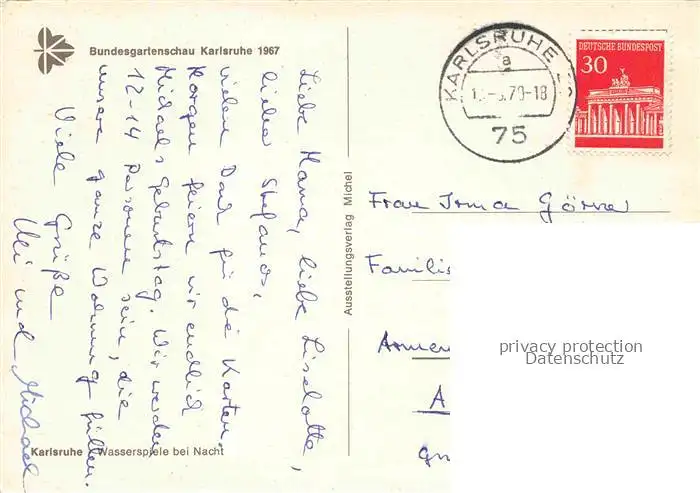 Bundesgartenschau Karlsruhe 1967
Liebe Mama, liebe Liselotte,
lieber Stefanos,
vielen Dank für die Karten.
Morgen feiern wir endlich
Michaels Geburtstag. Wir werden
12-14 Personen sein, die
unsere ganze Wohnung füllen.
Viele Grüße
Uli und Michael
Karlsruhe Wasserspiele bei Nacht
Ausstellungsverlag Michel
KARLSRUHE
a
-18
75
DEUTSCHE BUNDESPOST
30
Frau Irma
Famili
Armen
A
privacy protection
Datenschutz